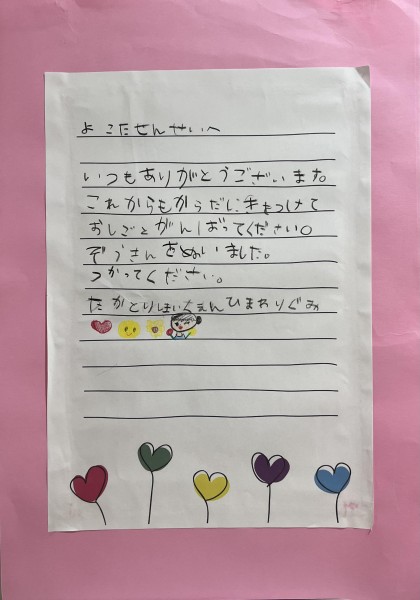 よこたせんせいへ
いつもありがとうございます。
これからもからだにきをつけて
おしごとがんばってください。
ぞうきんをぬいました。
つかってください。
たかとりようちえんひまわりぐみ